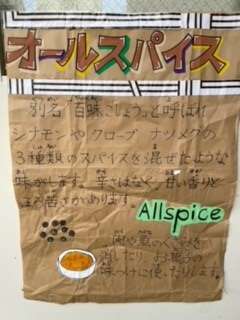 オールスパイス
別名「百味こしょう」と呼ばれ
シナモンやクローブ ナツメグの
3種類のスパイスを混ぜたような
味がします。辛さはなく、甘い香りと
ほろ苦さがあります。
Allspice
肉や魚のくさみを
消したり、お菓子の
味つけに使ったりします。